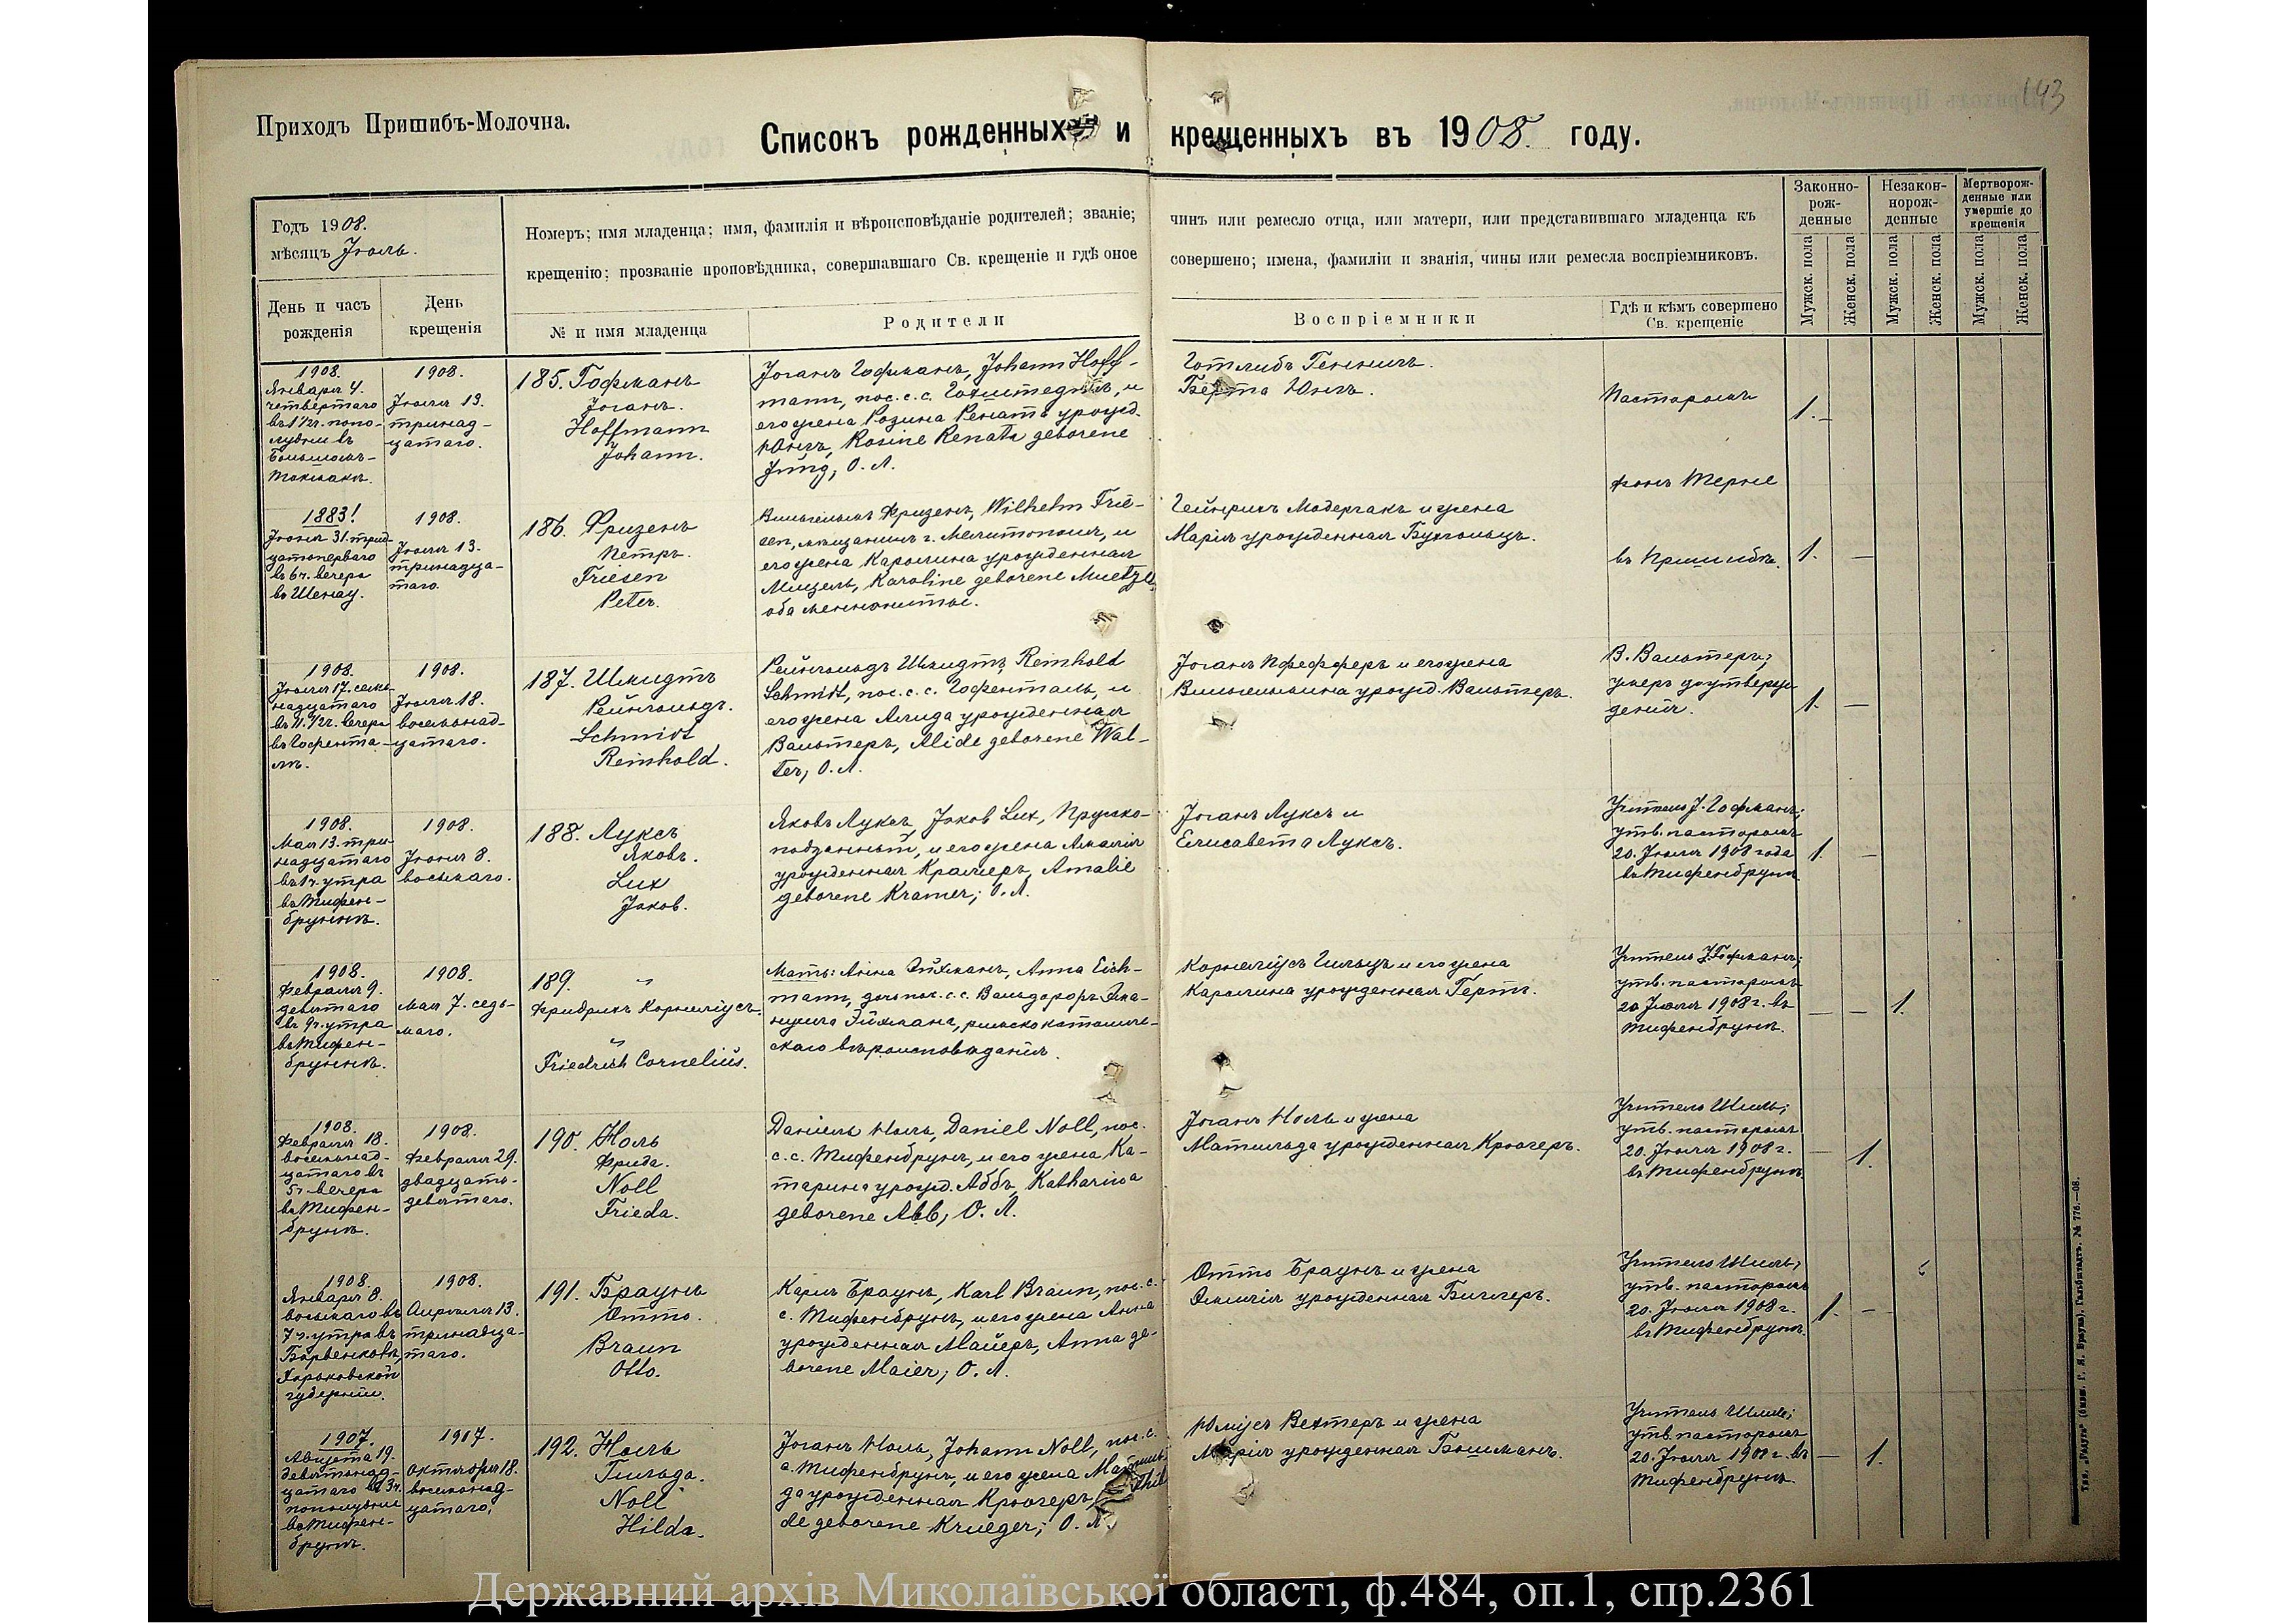 143
Приходъ Пришибъ-Молочна.
Списокъ рожденныхъ и крещенныхъ въ 1908 году.
Годъ 1908.
мѣсяцъ Іюль.
Номеръ; имя младенца; имя, фамилія и вѣроисповѣданіе родителей; званіе; чинъ или ремесло отца, или матери, или представившаго младенца къ
крещенію; прозваніе проповѣдника, совершавшаго Св. крещеніе и гдѣ оное совершено; имена, фамиліи и званія, чины или ремесла воспріемниковъ.
Законно-
рож-
денные
Незакон-
норож-
денные
Мертворож-
денные или
умершіе до
крещенія
Мужск. пола
Женск. пола
Мужск. пола
Женск. пола
Мужск. пола
Женск. пола
День и часъ
рожденія
День
крещенія
№ и имя младенца
Родители
Воспріемники
Гдѣ и кѣмъ совершено
Св. крещеніе
1908.
Января 4.
четвертаго
въ 1 1/2ч. попо-
лудни въ
Большомъ-
Токмакѣ.
1908.
Іюля 13.
тринад-
цатаго.
185. Гофманъ
Іоганъ.
Hoffmann
Johann.
Іоганъ Гофманъ, Johann Hoff-
mann, пос. с.с. и
его жена Розина Рената урожд.
Юнгъ, Rosine Renata geborene
Jung, О. Л.
Готлибъ Геннигъ.
Берта Юнгъ.
Пасторомъ
фонъ Терне
1. —
1883!
31. трид-
цатоперваго
въ 6ч. вечера
въ Шенау.
1908.
Іюля 13.
тринадца-
таго.
186. Фризенъ
Петръ.
Friesen
Peter.
Вильгельмъ Фризенъ, Wilhelm Frie-
sen, мѣщанинъ г. Мелитополя, и
его жена Каролина урожденная
Мицель, Karoline geborene Muetzel,
оба меннониты.
Гейнрихъ Модерзакъ и жена
Марія урожденная Бухгольцъ.
въ Пришибѣ.
1. —
1908.
Іюля 17. семь-
надцатаго
въ 11. 1/2ч. вечера
въ Гофента-
лѣ.
1908.
Іюля 18.
восемьнад-
цатаго.
187. Шмидтъ
Рейнгольдъ.
Schmidt
Reinhold.
Рейнгольдъ Шмидтъ, Reinhold
Schmidt, пос. с.с. Гофенталь, и
его жена Алида урожденная
Вальтеръ, Alide geborene Wal-
ter, О. Л.
Іоганъ Пфефферъ и его жена
Вильгельмина урожд. Вальтеръ.
В. Вальтеръ;
умеръ до утверж-
денія.
1. —
1908.
Мая 13. три-
надцатаго
въ 1ч. утра
въ Тифен-
бруннѣ.
1908.
Іюня 8.
восьмаго.
188. Луксъ
Яковъ.
Lux
Jakob.
Яковъ Луксъ, Jakob Lux, Прусско-
подданный, и его жена Амалія
урожденная Крамеръ, Amalie
geborene Kramer; О. Л.
Іоганъ Луксъ и
Елисавета Луксъ.
Учитель J. Гофманъ;
утв. пасторомъ
20. Іюля 1908 года
въ Тифенбрунѣ.
1. —
1908.
Февраля 9.
девятаго
въ 9ч. утра
въ Тифен-
бруннѣ.
1908.
Мая 7. седь-
маго.
189. "
Фридрихъ Корнеліусъ.
"
Friedrich Cornelius.
Мать: Анна Эйхманъ, Anna Eich-
mann, дочь пос. с.с. Вальдорфъ Эма-
нуила Эйхмана, римско католиче-
скаго вѣроисповѣданія.
Корнеліусъ Гильцъ и его жена
Каролина урожденная Гертъ.
Учитель J. Гофманъ;
утв. пасторомъ
20 Іюля 1908г. въ
Тифенбрунѣ.
— — 1.
1908.
Февраля 18.
восемьнад-
цатаго въ
5ч. вечера
въ Тифен-
брунѣ.
1908.
Февраля 29.
двадцать-
девятаго.
190. Ноль
Фрида.
Noll
Frieda.
Даніель Ноль, Daniel Noll, пос.
с.с. Тифенбрунъ, и его жена Ка-
тарина урожд. Аббъ, Katharina
geborene Abb, О. Л.
Іоганъ Ноль и жена
Матильда урожденная Крюгеръ.
Учитель Шиль;
утв. пасторомъ
20. Іюля 1908г.
въ Тифенбрунѣ
— 1.
1908.
Января 8.
восьмаго въ
7ч. утра въ
Барвенковѣ,
Харьковской
губерніи.
1908.
Апрѣля 13.
тринадца-
таго.
191. Браунъ
Отто.
Braun
Otto.
Карлъ Браунъ, Karl Braun, пос. с.
с. Тифенбрунъ, и его жена Анна
урожденная Майеръ, Anna ge-
borene Maier; О. Л.
Отто Браунъ и жена
Эмилія урожденная Биллеръ.
Учитель Шиль;
утв. пасторомъ
20. Іюля 1908г.
въ Тифенбрунѣ.
1. —
1907.
Августа 19.
девятнад-
цатаго въ 3ч.
пополудни
въ Тифен-
брунѣ.
1907.
Октября 18.
восемьнад-
цатаго.
192. Ноль
Гильда.
Noll
Hilda.
Іоганъ Ноль, Johann Noll, пос. с.
с. Тифенбрунъ, и его жена Матиль-
да урожденная Крюгеръ,
de geborene Krueger; О. Л.
Юліусъ Вехтеръ и жена
Марія урожденная Бошманъ.
Учитель Шиль;
утв. пасторомъ
20. Іюля 1908г. въ
Тифенбрунѣ.
— 1.
Тип. „Радуга" (бывш. Г. Я. Браунъ), Гальбштадтъ. № 776.—08.
Державний архів Миколаївської області, ф.484, оп.1, спр.2361